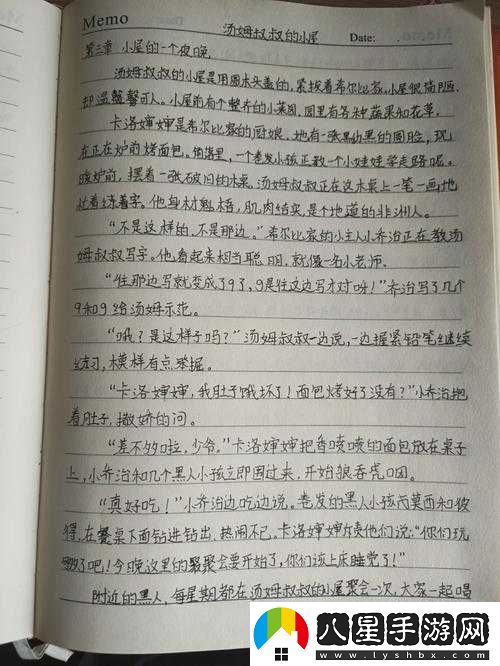 Memo
汤姆叔叔的小屋
Date:
第三章 小屋的一个夜晚
汤姆叔叔的小屋是用圆木头盖的，紧挨着希尔比家。小屋很简陋，
却温馨可人。小屋前有个整齐的小菜园，园里有各种蔬果和花草。
卡洛婶婶是希尔比家的厨娘，她有一张黑黝黑的圆脸，现
在正在炉前烤面包。角落里，一个卷发小孩正教一个小娃娃学走路呢。
暖炉前，摆着一张破旧的木桌。汤姆叔叔正在这木桌上一笔一画地
忙着练着字。他身材魁梧，肌肉结实，是个地道的非洲人。
“不是这样的，不是那边。”希尔比家的小主人小乔治正在教汤
姆叔叔写字。他看起来相当聪明，就像一名小老师。
“往那边写就变成了9了，g是往这边写才对呀！”乔治写了几个
9和g给汤姆示范。
“哦？是这样子吗？”汤姆叔叔一边说，一边握紧铅笔继续
练习，模样有点笨拙。
“卡洛婶婶，我肚子饿坏了！面包烤好了没有？”小乔治抱
着肚子，撒娇的问。
“差不多啦，少爷。”卡洛婶婶把香喷喷的面包放在桌子
上，小乔治和几个黑人小孩立即围过来，开始狼吞虎咽。
“真好吃！”小乔治边吃边说。卷发的黑人小孩芮莫西和彼
得，在餐桌下面钻进钻出，热闹不已。卡洛婶婶责他们说：“你们玩
够了吧！今晚这里的聚会要开始了，你们该上床睡觉了！”
附近的黑人，每星期都在汤姆叔叔的小屋聚会一次，大家一起唱
八星手游网
www.lyshbx.com